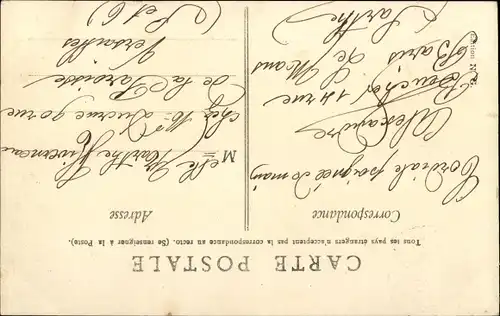 CARTE POSTALE
Tous les pays étrangers n'acceptent pas la correspondance au recto. (Se renseigner à la Poste).
Correspondance
Cordiale poignée de main
Alexandre
Boucher 14 rue
Paris Le Mans
Sarthe
Adresse
M elle Marthe
chez Mr
9 rue
de la Paroisse
Versailles
(S et O)